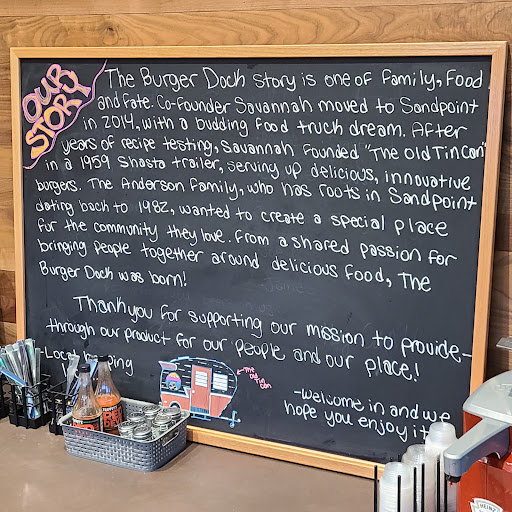 OUR STORY
The Burger Dock story is one of Family, Food,
and Fate. Co-Founder Savannah moved to Sandpoint
in 2014, with a budding food truck dream. After
years of recipe testing, Savannah founded "The Old Tin Can"
in a 1959 Shasta trailer, serving up delicious, innovative
burgers. The Anderson Family, who has roots in Sandpoint
dating back to 1982, wanted to create a special place
for the community they love. From a shared passion for
bringing people together around delicious food, The
Burger Dock was born!
Thank you for supporting our mission to provide-
through our product for our people and our place!
-Local
The
Old
Tin
Can
-Welcome in and we
hope you enjoy it
HEINZ